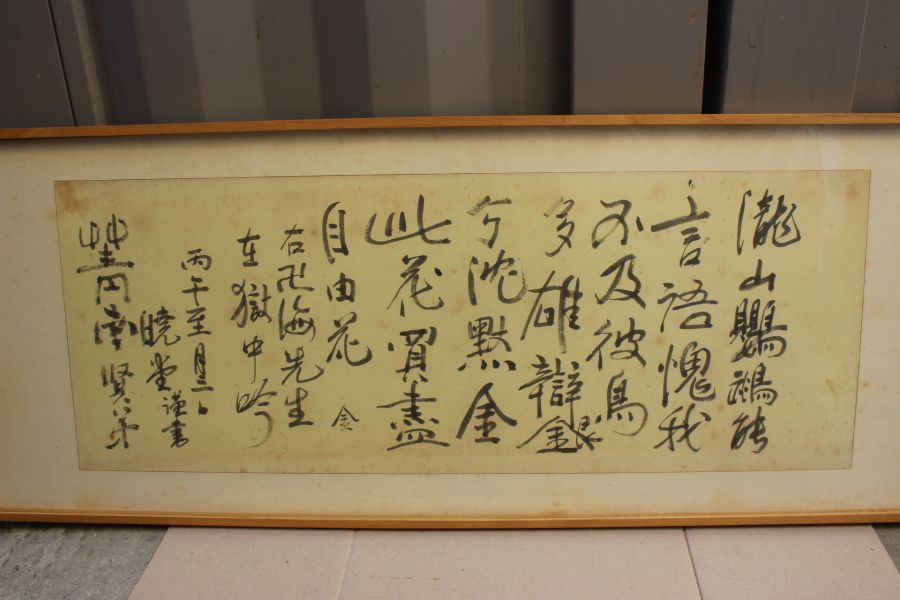 瀧山鸚鵡能
言語愧我
不及彼鳥
多雄辯銀
兮沈黙金
此花買盡
自由花 金
右卍海先生
在獄中吟
丙午至月三日
曉堂謹書
菁南賢弟